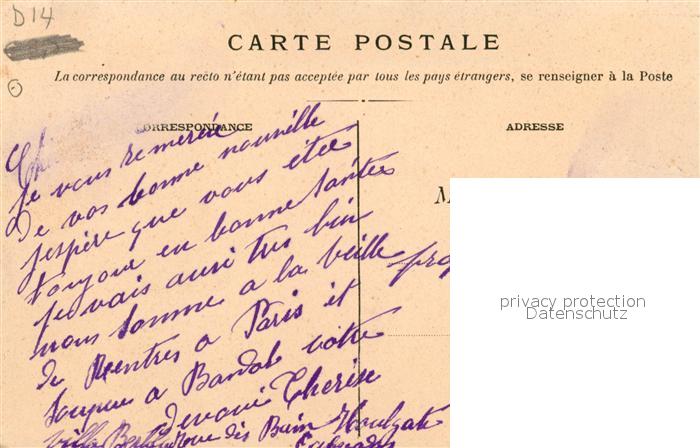 D14
CARTE POSTALE
La correspondance au recto n'étant pas acceptée par tous les pays étrangers, se renseigner à la Poste
CORRESPONDANCE
ADRESSE
je vous remercie
De vos bonne nouvelle
jespère que vous êtes
toujour en bonne santés
je vais aussi tres bien
nous somme a la veille
de Rentres a Paris et
a Bandol votre
devoué Therèse
Villa rue des Bain Houlgate
Calvados
M
privacy protection
Datenschutz